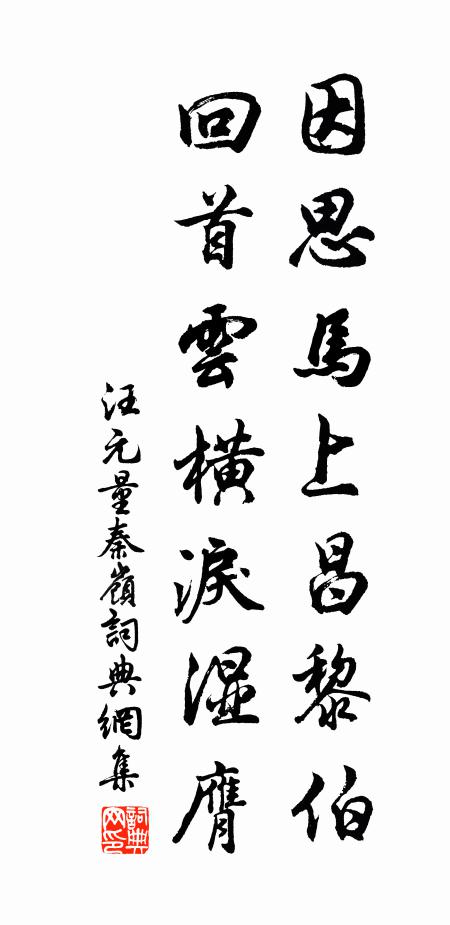 因思馬上昌黎伯
回首雲橫淚濕膺
汪元量秦嶺詞典網集
詞典
网印